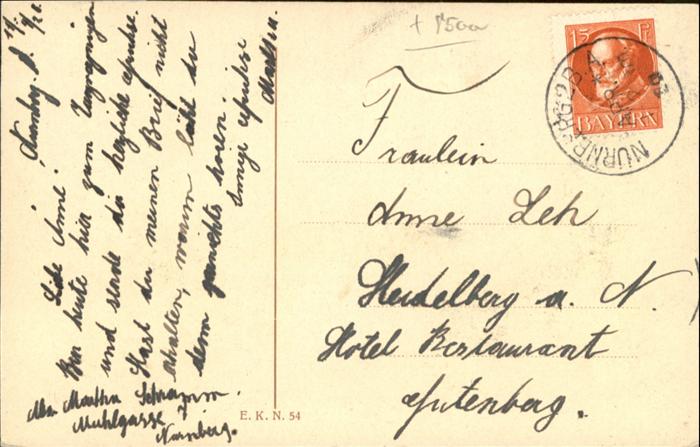 Nürnberg d.
Liebe Anne!
Bin heute hier zum Vergnügen
und sende dir herzliche Grüsse.
Hast du meinen Brief nicht
erhalten, warum läßt du
denn garnichts hören.
Innige Grüsse
Martha
Abs. Martha Schramm.
Muhlgasse 7
Nürnberg.
+ 1500
15 Pf
BAYERN
NÜRNBERG 2 B.A.
Fräulein
Anne Leh
Heidelberg a. N.
Hotel Restaurant
Gutenberg.
E. K. N. 54